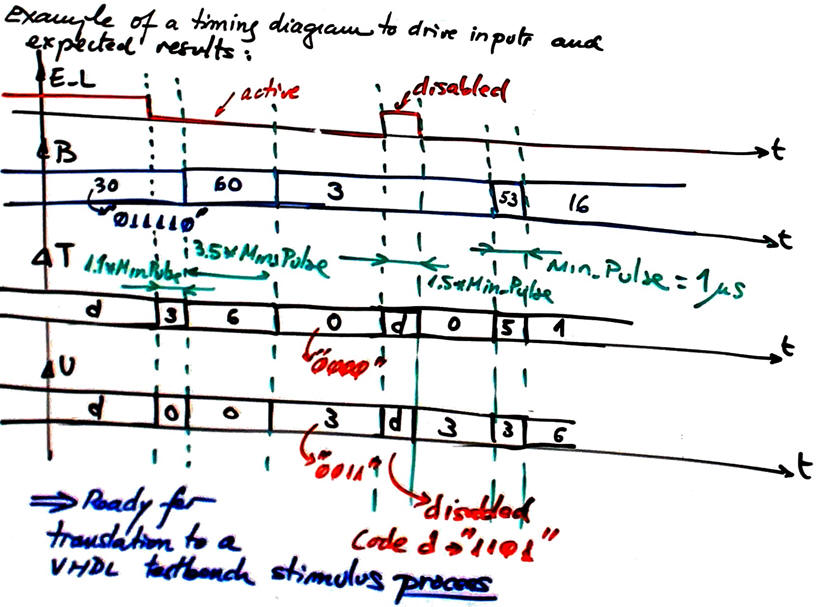 Example of a timing diagram to drive inputs and
expected results:
E_L
active
disabled
t
B
30
60
3
53
16
"011110"
t
T
1.1*Min_Pulse
3.5*Min_Pulse
1.5*Min_Pulse
Min_Pulse = 1 µs
d
3
6
0
d
0
5
1
"0000"
t
U
d
0
0
3
d
3
3
6
"0011"
t
⇒ Ready for
translation to a
VHDL testbench stimulus process
disabled
Code d → "1101"